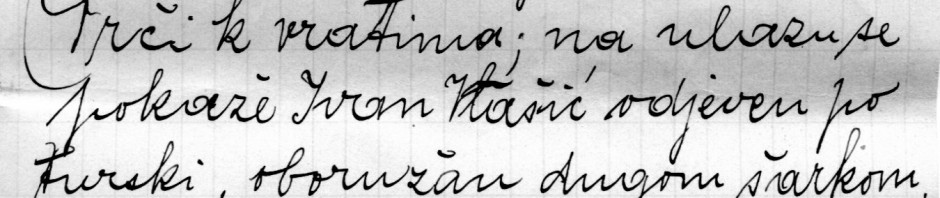 (Trči k vratima; na ulazu se
pokaže Ivan Hašić odjeven po
turski, oboružan dugom šarkom,